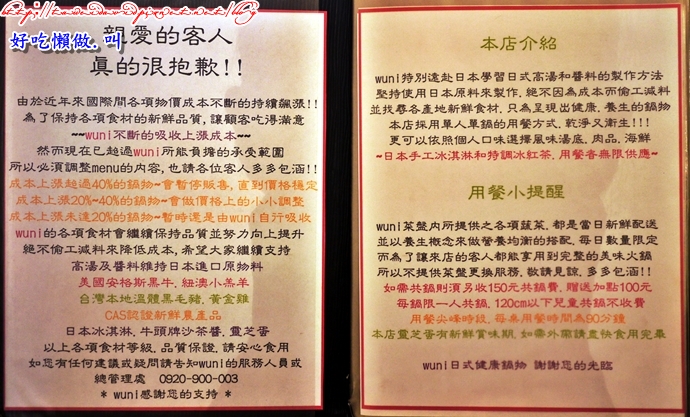 好吃懶做.叫
親愛的客人
真的很抱歉!!
由於近年來國際間各項物價成本不斷的持續飆漲!!
為了保持各項食材的新鮮品質,讓顧客吃得滿意
~~wuni不斷的吸收上漲成本~~
然而現在已超過wuni所能負擔的承受範圍
所以必須調整menu的內容,也請各位客人多多包涵!!
成本上漲超過40%的鍋物~會暫停販售,直到價格穩定
成本上漲20%~40%的鍋物~會做價格上的小小調整
成本上漲未達20%的鍋物~暫時還是由wuni自行吸收
wuni的各項食材會繼續保持品質並努力向上提升
絕不偷工減料來降低成本,希望大家繼續支持
高湯及醬料維持日本進口原物料
美國安格斯黑牛.紐澳小羔羊
台灣本地溫體黑毛豬.黃金雞
CAS認證新鮮農產品
日本冰淇淋.牛頭牌沙茶醬.靈芝蛋
以上各項食材等級.品質保證.請安心食用
如您有任何建議或疑問請告知wuni的服務人員或
總管理處 0920-900-003
* wuni感謝您的支持 *
本店介紹
wuni特別遠赴日本學習日式高湯和醬料的製作方法
堅持使用日本原料來製作.絕不因為成本而偷工減料
並找尋各產地新鮮食材.只為呈現出健康.養生的鍋物
本店採用單人單鍋的用餐方式.乾淨又衛生!!!
更可以依照個人口味選擇風味湯底.肉品.海鮮
~日本手工冰淇淋和特調冰紅茶.用餐者無限供應~
用餐小提醒
wuni菜盤內所提供之各項蔬菜.都是當日新鮮配送
並以養生概念來做營養均衡的搭配.每日數量限定
而為了讓來店的客人都能享用到完整的美味火鍋
所以不提供菜盤更換服務.敬請見諒.多多包涵!!
如需共鍋則須另收150元共鍋費.贈送加點100元
每鍋限一人共鍋.120cm以下兒童共鍋不收費
用餐尖峰時段.每桌用餐時間為90分鐘
本店靈芝蛋有新鮮賞味期.如需外帶請盡快食用完畢
wuni日式健康鍋物 謝謝您的光臨